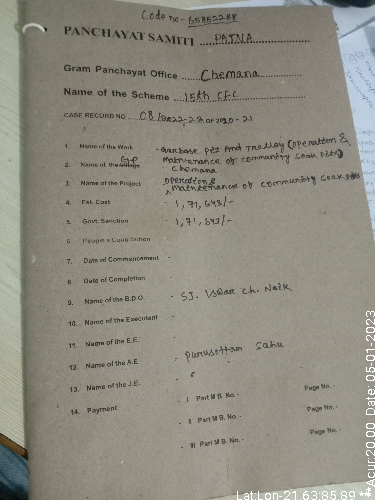 Code no- 65852288
PANCHAYAT SAMITI PATNA
Gram Panchayat Office Chemana
Name of the Scheme 15th CFC
CASE RECORD NO 08/2022-23 OF 2020-21
1. Name of the Work - Garbase Pit And Trolley (operation &
Maintenance of community Soak Pits)
2. Name of the Village G.P Chemana
3. Name of the Project operation & Maintenance of community Soak pits
4. Est. Cost - 1,71,643/-
5. Govt. Sanction - 1,71,643/-
6 People's Contribution -
7. Date of Commencement -
8. Date of Completion -
9. Name of the B.D.O. - SJ. Iswar Ch. Naik
10. Name of the Executant -
11. Name of the E.E. -
12. Name of the A.E - Purusottam Sahu
13. Name of the J.E. -
14. Payment - I Part M.B. No. - Page No. -
- II Part M.B. No. - Page No. -
- III Part M.B. No. - Page No. -
Lat:Lon-21.63:85.89 **Acur:20.00 Date:05-01-2023